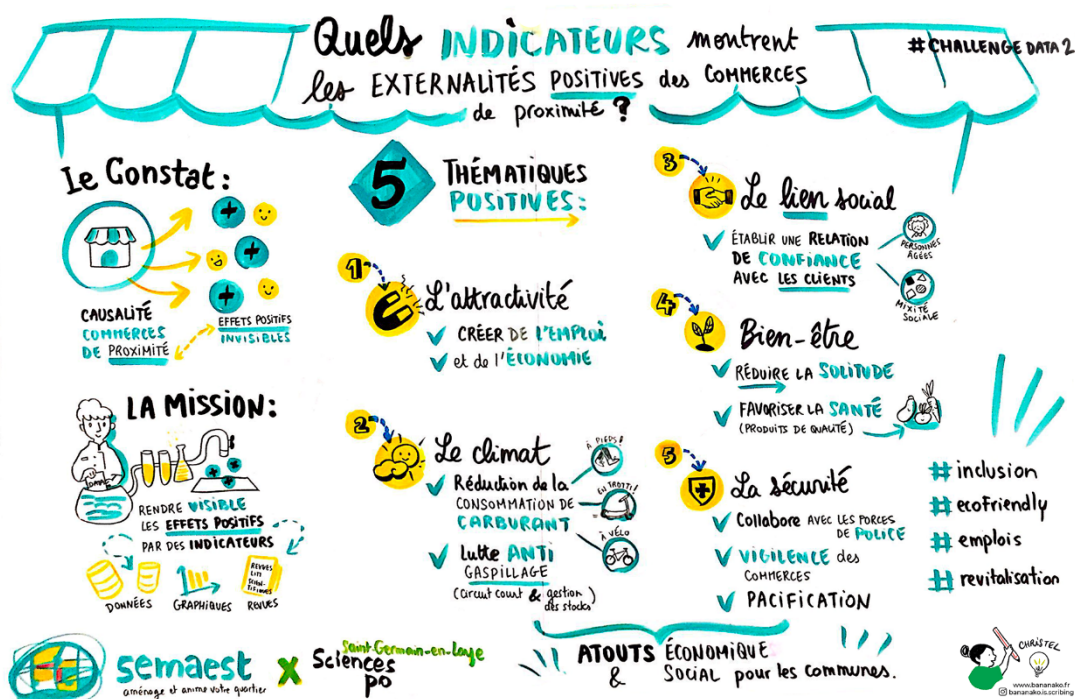 Quels INDICATEURS montrent
les EXTERNALITÉS POSITIVES des COMMERCES
de proximité ?
#CHALLENGE DATA 2
Le Constat :
CAUSALITÉ
COMMERCES
DE PROXIMITÉ
EFFETS POSITIFS
INVISIBLES
LA MISSION :
RENDRE VISIBLE
LES EFFETS POSITIFS
PAR DES INDICATEURS
DONNÉES
GRAPHIQUES
REVUES
REVUES
5 THÉMATIQUES
POSITIVES :
1
L'attractivité
CRÉER DE L'EMPLOI
et de l'ÉCONOMIE
2
Le climat
Réduction de la
CONSOMMATION DE
CARBURANT
À PIEDS !
EN TROTTI !
À VÉLO
Lutte ANTI
GASPILLAGE
(circuit court & gestion
des stocks)
3
Le lien social
ÉTABLIR UNE RELATION
DE CONFIANCE
AVEC LES CLIENTS
PERSONNES
ÂGÉES
MIXITÉ
SOCIALE
4
Bien-être
RÉDUIRE LA SOLITUDE
FAVORISER LA SANTÉ
(PRODUITS DE QUALITÉ)
5
La sécurité
Collabore AVEC LES FORCES
DE POLICE
VIGILENCE des
COMMERCES
PACIFICATION
# inclusion
# ecofriendly
# emplois
# revitalisation
semaest
aménage et anime votre quartier
X
Sciences
po
Saint-Germain-en-Laye
ATOUTS ÉCONOMIQUE
& SOCIAL pour les communes.
CHRISTEL
www.bananako.fr
bananako.scribing